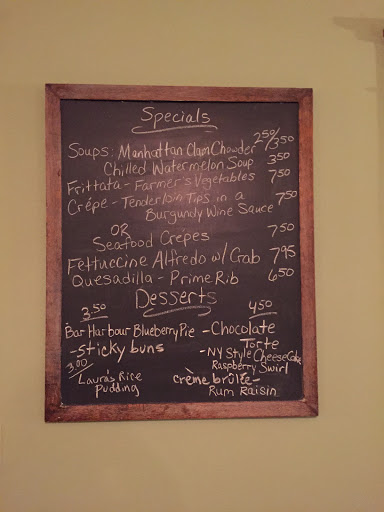 Specials
Soups: Manhattan Clam Chowder 2.50/3.50
Chilled Watermelon Soup 3.50
Frittata - Farmer's Vegetables 7.50
Crépe - Tenderloin Tips in a 7.50
Burgundy Wine Sauce
OR
Seafood Crêpes 7.50
Fettuccine Alfredo w/ Crab 7.95
Quesadilla - Prime Rib 6.50
Desserts
3.50
Bar Harbour Blueberry Pie
- sticky buns
3.00
Laura's Rice
Pudding
4.50
- Chocolate
Torte
- NY Style Cheese Cake
Raspberry Swirl
crème brûlée -
Rum Raisin